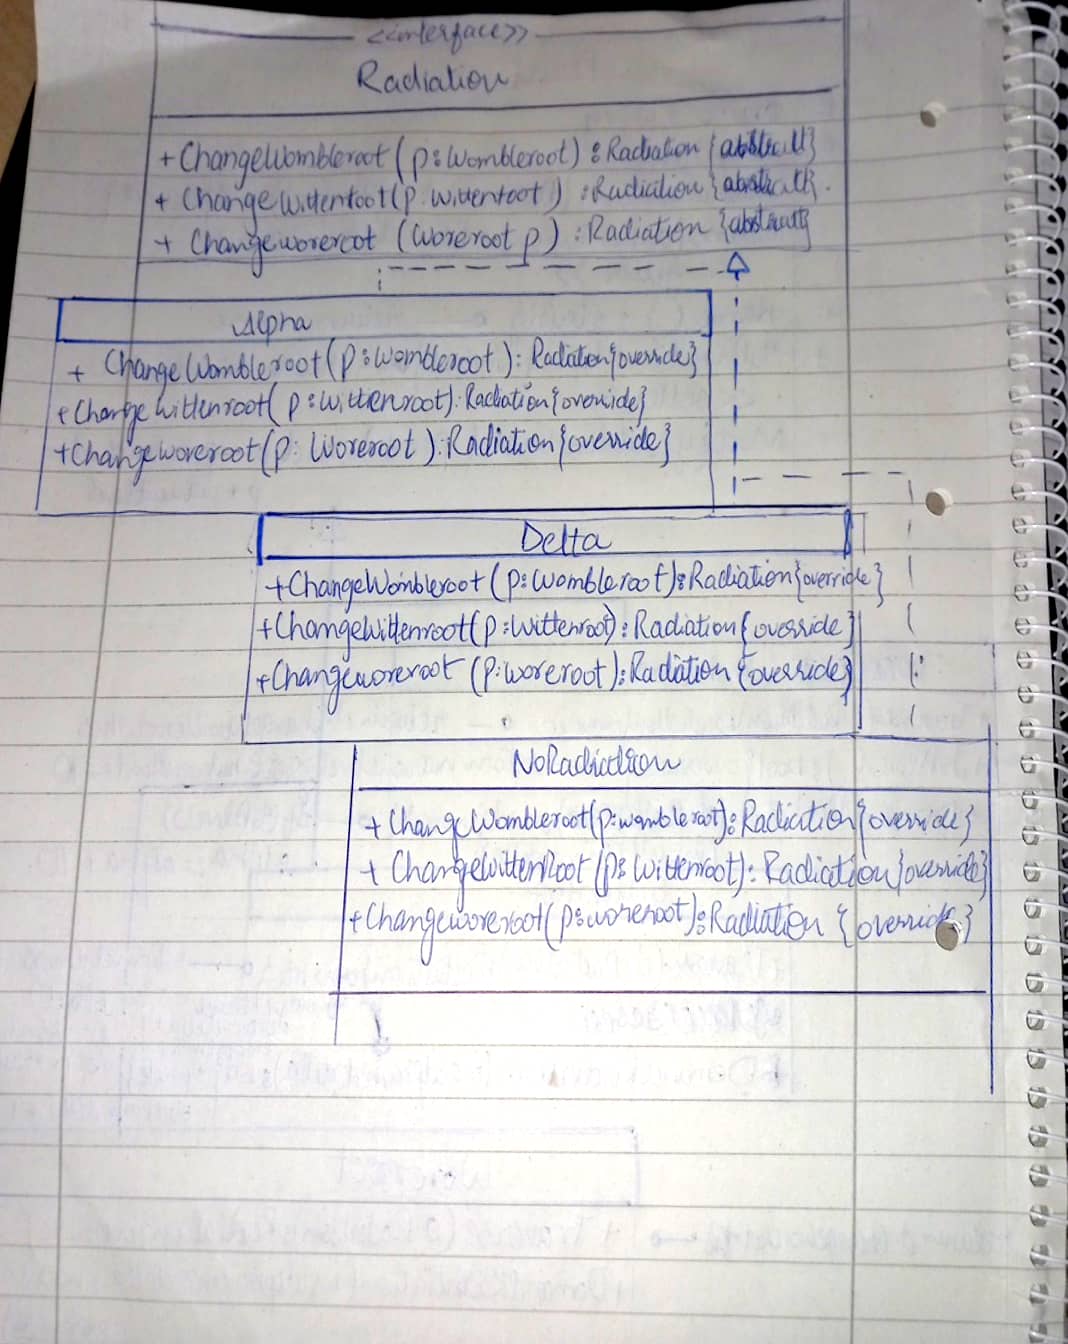 <<interface>>
Radiation
+ ChangeWombleroot (p: Wombleroot) : Radiation {abstract}
+ Change Wittenroot (p. Wittenroot) : Radiation {abstract}.
+ Changeworeroot (Woreroot p) : Radiation {abstract}
Alpha
+ ChangeWombleroot (p: Wombleroot) : Radiation {override}
+ Change Wittenroot( p: Wittenroot): Radiation {override}
+Changeworeroot (p: Woreroot ): Radiation {override}
Delta
+ChangeWombleroot (p: Wombleroot): Radiation {override}
+ChangeWittenroot(p: Wittenroot): Radiation {override}
+Changeworeroot (p: woreroot): Radiation {override}
NoRadiation
+ ChangeWombleroot(p: wombleroot): Radiation {override}
+ ChangeWittenRoot (p: Wittenroot): Radiation {override}
+Changeworeroot(p: woreroot): Radiation {override}